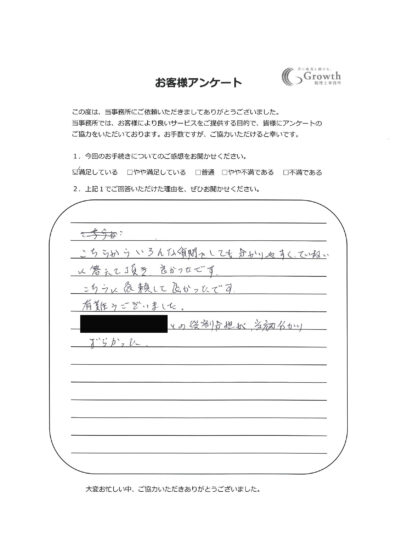 Growth
税理士事務所
お客様アンケート
この度は、当事務所にご依頼いただきましてありがとうございました。
当事務所では、お客様により良いサービスをご提供する目的で、皆様にアンケートの
ご協力をいただいております。お手数ですが、ご協力いただけると幸いです。
1．今回のお手続きについてのご感想をお聞かせください。
☑満足している □やや満足している □普通 □やや不満である □不満である
2．上記1でご回答いただけた理由を、ぜひお聞かせください。
こちらから いろんな質問をしても 分かりやすく ていねい
に 答えて頂き 良かったです
こちらに依頼して良かったです
有難うございました。
との役割分担が、当初分かり
づらかった
大変お忙しい中、ご協力いただきありがとうございました。